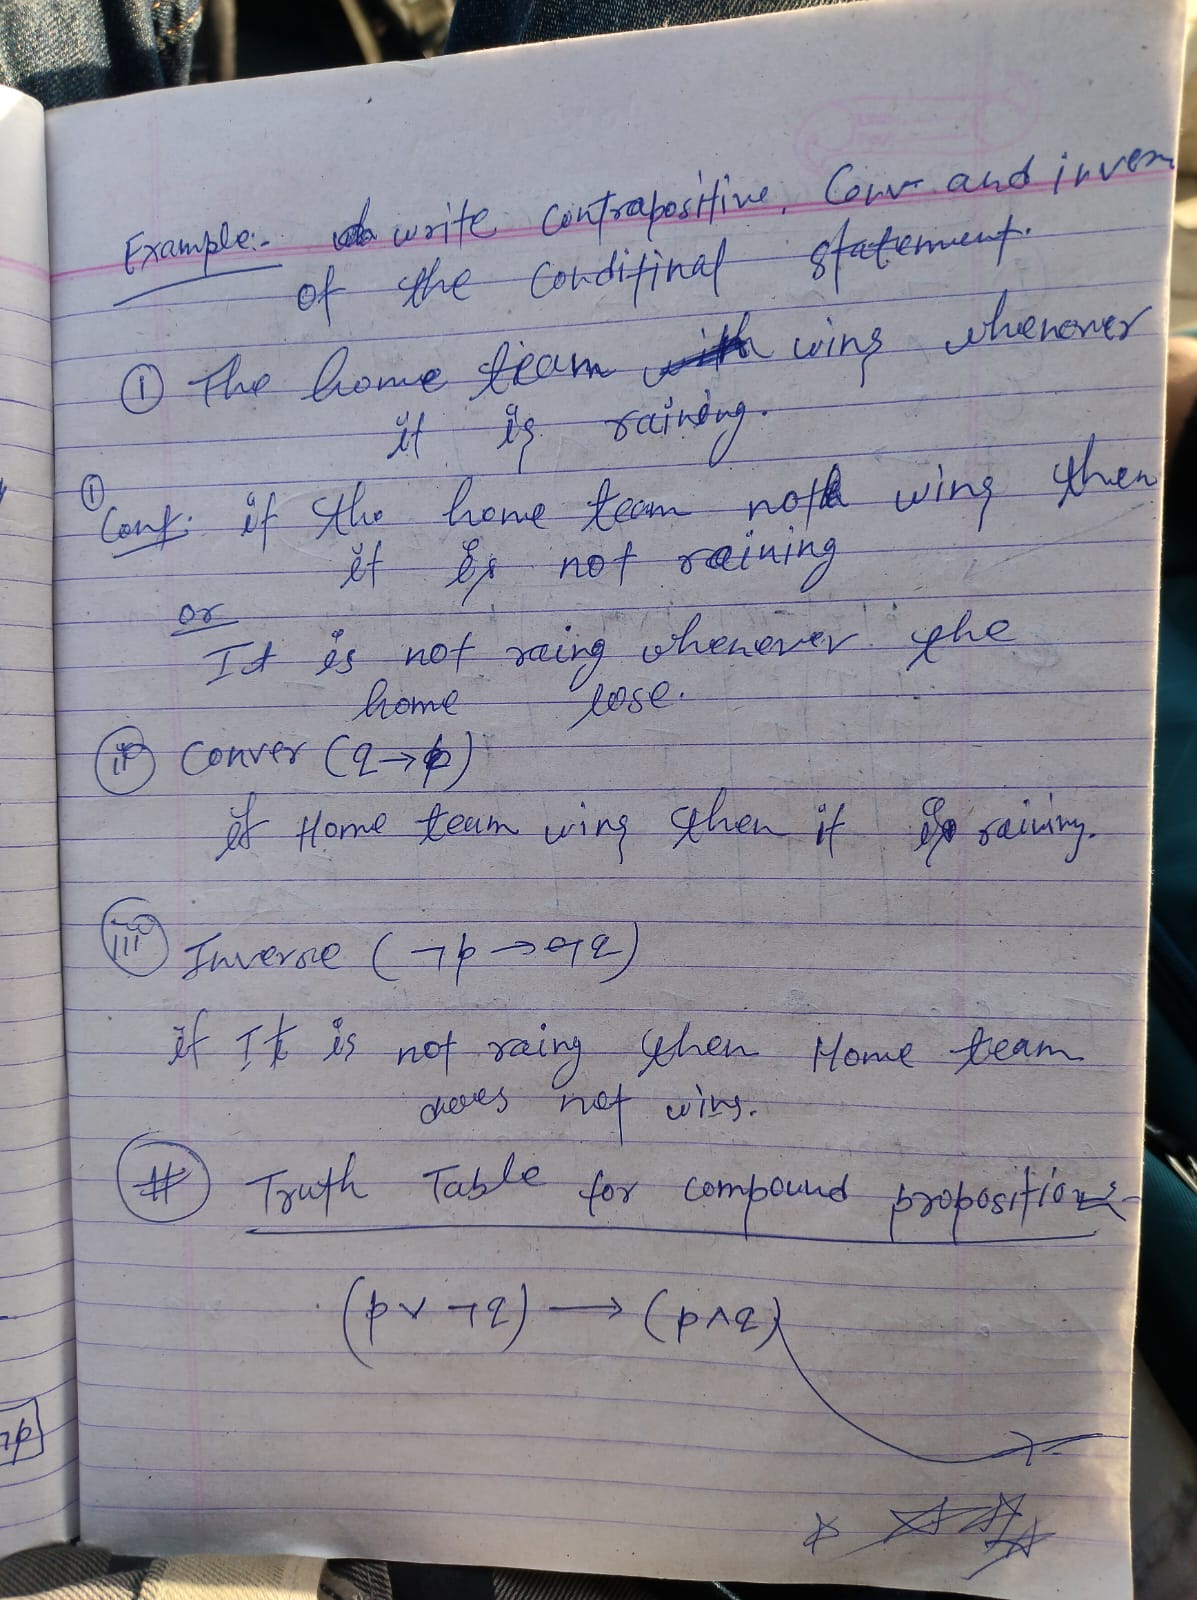 Example:- write contrapositive, Conv and inver
of the Conditinal statement.
① The home team wins whenever
it is raining.
①
Cont: if the home team not wins then
it is not raining
or
It is not raing whenever the
home lose.
ii Conver (q→p)
if Home team wins then it is raining.
iii Inverse (¬p→¬q)
if It is not raing then Home team
does not wins.
# Truth Table for compound propositions-
(p∨¬q) → (p∧q)
¬p